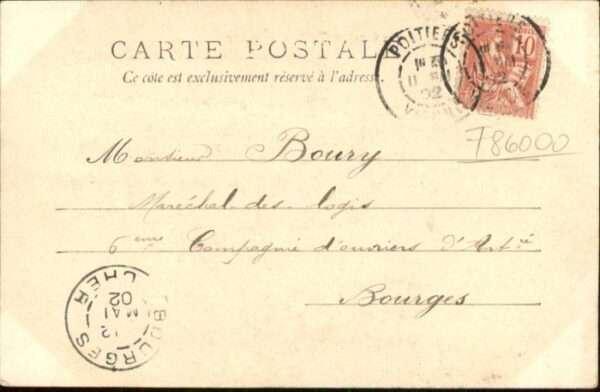 CARTE POSTALE
Ce côté est exclusivement réservé à l'adresse.
POITIERS
02
POITIERS
02
10
786000
Monsieur Boury
Maréchal-des-logis
6eme Compagnie d'ouvriers d'Artie
Bourges
BOURGES
CHER
12
MAI
02